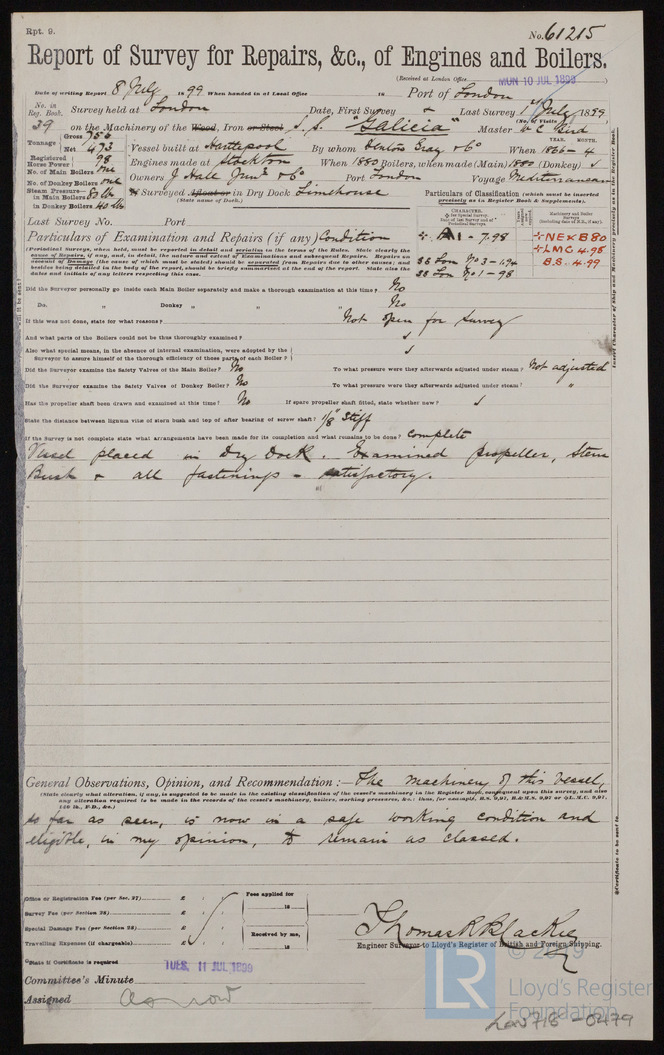 Rpt. 9.
No. 61215
Report of Survey for Repairs, &c., of Engines and Boilers.
(Received at London Office MON 10 JUL 1899)
Date of writing Report 8 July 1899 When handed in at Local Office 18 Port of London
No. in Reg. Book. 39
Survey held at London Date, First Survey Last Survey 1st July 1899
(No. of Visits)
on the Machinery of the Wood, Iron or Steel S.S. "Galicia" Master
Tonnage Gross Net 493
Vessel built at Hartlepool By whom Denton Gray & Co When 1866-4
Registered Horse Power 98
Engines made at Stockton When 1880 Boilers, when made (Main) 1880 (Donkey)
No. of Main Boilers one
No. of Donkey Boilers one
Owners J Hall Junr & Co Port London Voyage Mediterranean
Steam Pressure in Main Boilers 80 lb
in Donkey Boilers 40 lb
If Surveyed Afloat or in Dry Dock Limehouse
(State name of Dock.)
Particulars of Classification (which must be inserted precisely as in Register Book & Supplements).
Last Survey No. Port
Particulars of Examination and Repairs (if any) Condition
A1 - 7.98
SS Lon No 3-1.94
SS Lon No 1-98
NE&B 80
LMC 4.98
B.S. 4.99
Did the Surveyor personally go inside each Main Boiler separately and make a thorough examination at this time? No
Do. " Donkey " " " No
If this was not done, state for what reasons? Not open for survey
And what parts of the Boilers could not be thus thoroughly examined?
Also what special means, in the absence of internal examination, were adopted by the Surveyor to assure himself of the thorough efficiency of those parts of each Boiler?
Did the Surveyor examine the Safety Valves of the Main Boiler? No To what pressure were they afterwards adjusted under steam? Not adjusted
Did the Surveyor examine the Safety Valves of Donkey Boiler? No To what pressure were they afterwards adjusted under steam? "
Has the propeller shaft been drawn and examined at this time? No If spare propeller shaft fitted, state whether new?
State the distance between lignum vitæ of stern bush and top of after bearing of screw shaft? 1/8" Stiff
If the Survey is not complete state what arrangements have been made for its completion and what remains to be done? Complete
Vessel placed in Dry Dock. Examined propeller, Stern
Bush & all fastenings - satisfactory.
General Observations, Opinion, and Recommendation:— The machinery of this vessel,
(State clearly what alteration, if any, is suggested to be made in the existing classification of the vessel's machinery in the Register Book, consequent upon this survey, and also
any alteration required to be made in the records of the vessel's machinery, boilers, working pressures, &c.: thus, for example, B.S. 9,97, B.&M.S. 9,97 or L.M.C. 9,97,
140 lb., F.D., &c.)
so far as seen, is now in a safe working condition and
eligible, in my opinion, to remain as classed.
Office or Registration Fee (per Sec. 27) £
Survey Fee (per Section 28) £
Special Damage Fee (per Section 28) £
Travelling Expenses (if chargeable) £
Fees applied for
18
Received by me,
18
Thomas R Blackie
Engineer Surveyor to Lloyd's Register of British and Foreign Shipping.
State if Certificate is required
TUES. 11 JUL 1899
Committee's Minute
Assigned As now
© 2019
LR
Lloyd's Register
Foundation
Lon 718-0479